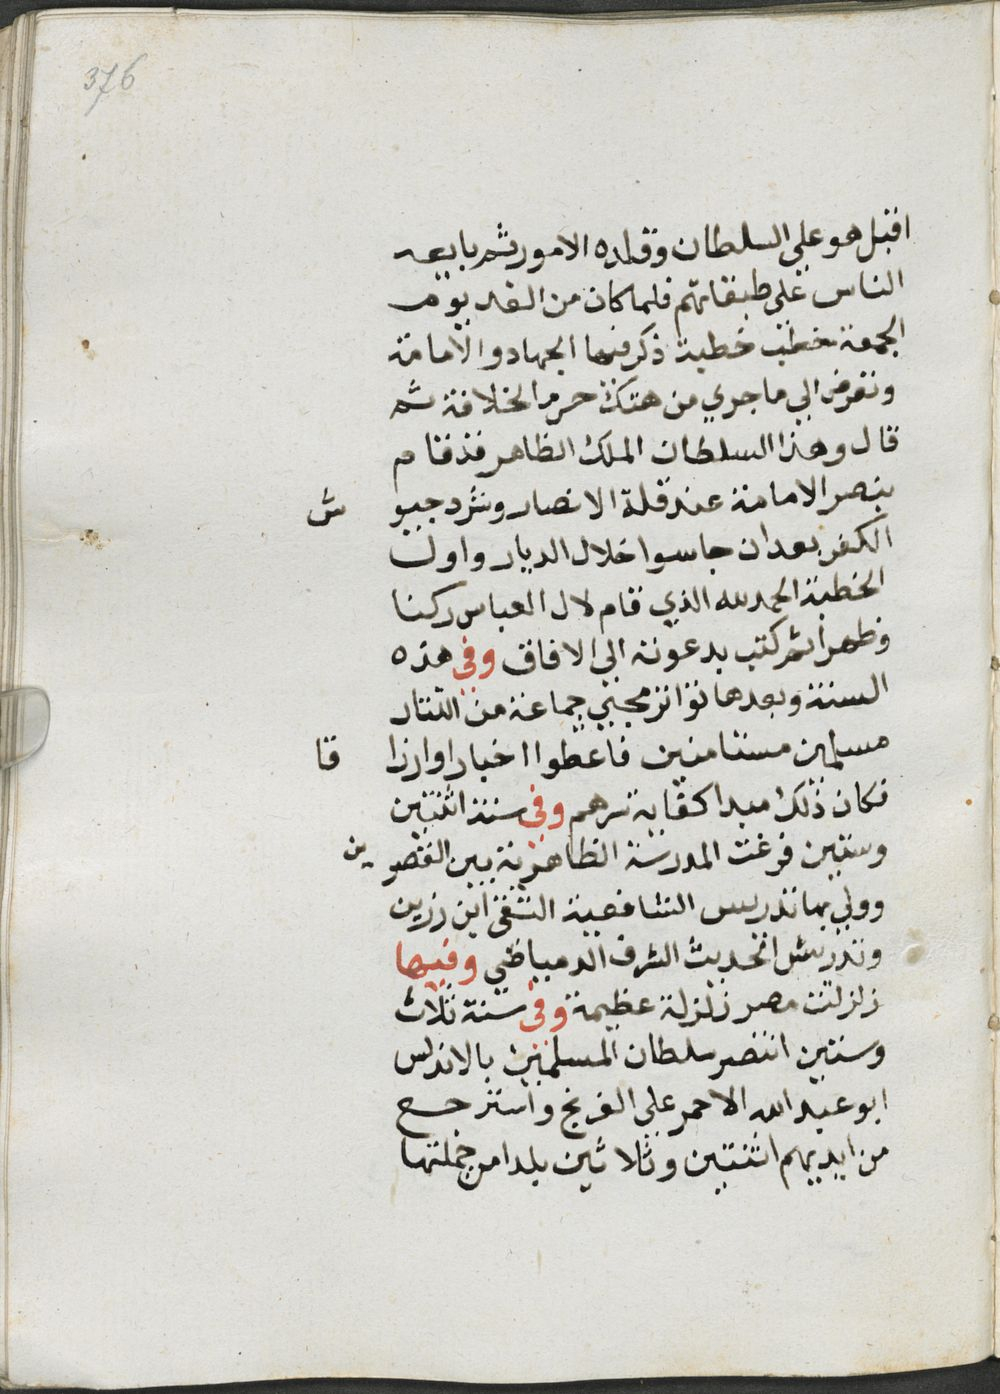 376
اقبل هو على السلطان وقلده الامور ثم بايعه
الناس على طبقاتهم فلما كان من الغد يوم
الجمعة خطب خطبة ذكر فيها الجهاد والامامة
وتعرض الى ما جرى من هتك حرم الخلافة ثم
قال وهذا السلطان الملك الظاهر قد قام
بنصر الامامة عند قلة الانصار وشرد جيو ش
الكفر بعد ان جاسوا خلال الديار واول
الخطبة الحمد لله الذي قام لال العباس ركنا
وظهرا ثم كتب بدعوته الى الافاق وفى هذه
السنة وبعدها تواتر مجيئ جماعة من التتار
مسلمين مستامنين فاعطوا اخبارا وارزا قا
فكان ذلك مبدا كفاية شرهم وفى سنة اثنتين
وستين فرغت المدرسة الظاهرية بين القصر ين
وولي بها تدريس الشافعية التقى ابن رزين
وتدريس الحديث الشرف الدمياطي وفيها
زلزلت مصر زلزلة عظيمة وفى سنة ثلاث
وستين انتصر سلطان المسلمين بالاندلس
ابو عبد الله الاحمر على الفرنج واسترجع
من ايديهم اثنتين وثلاثين بلدا من جملتها